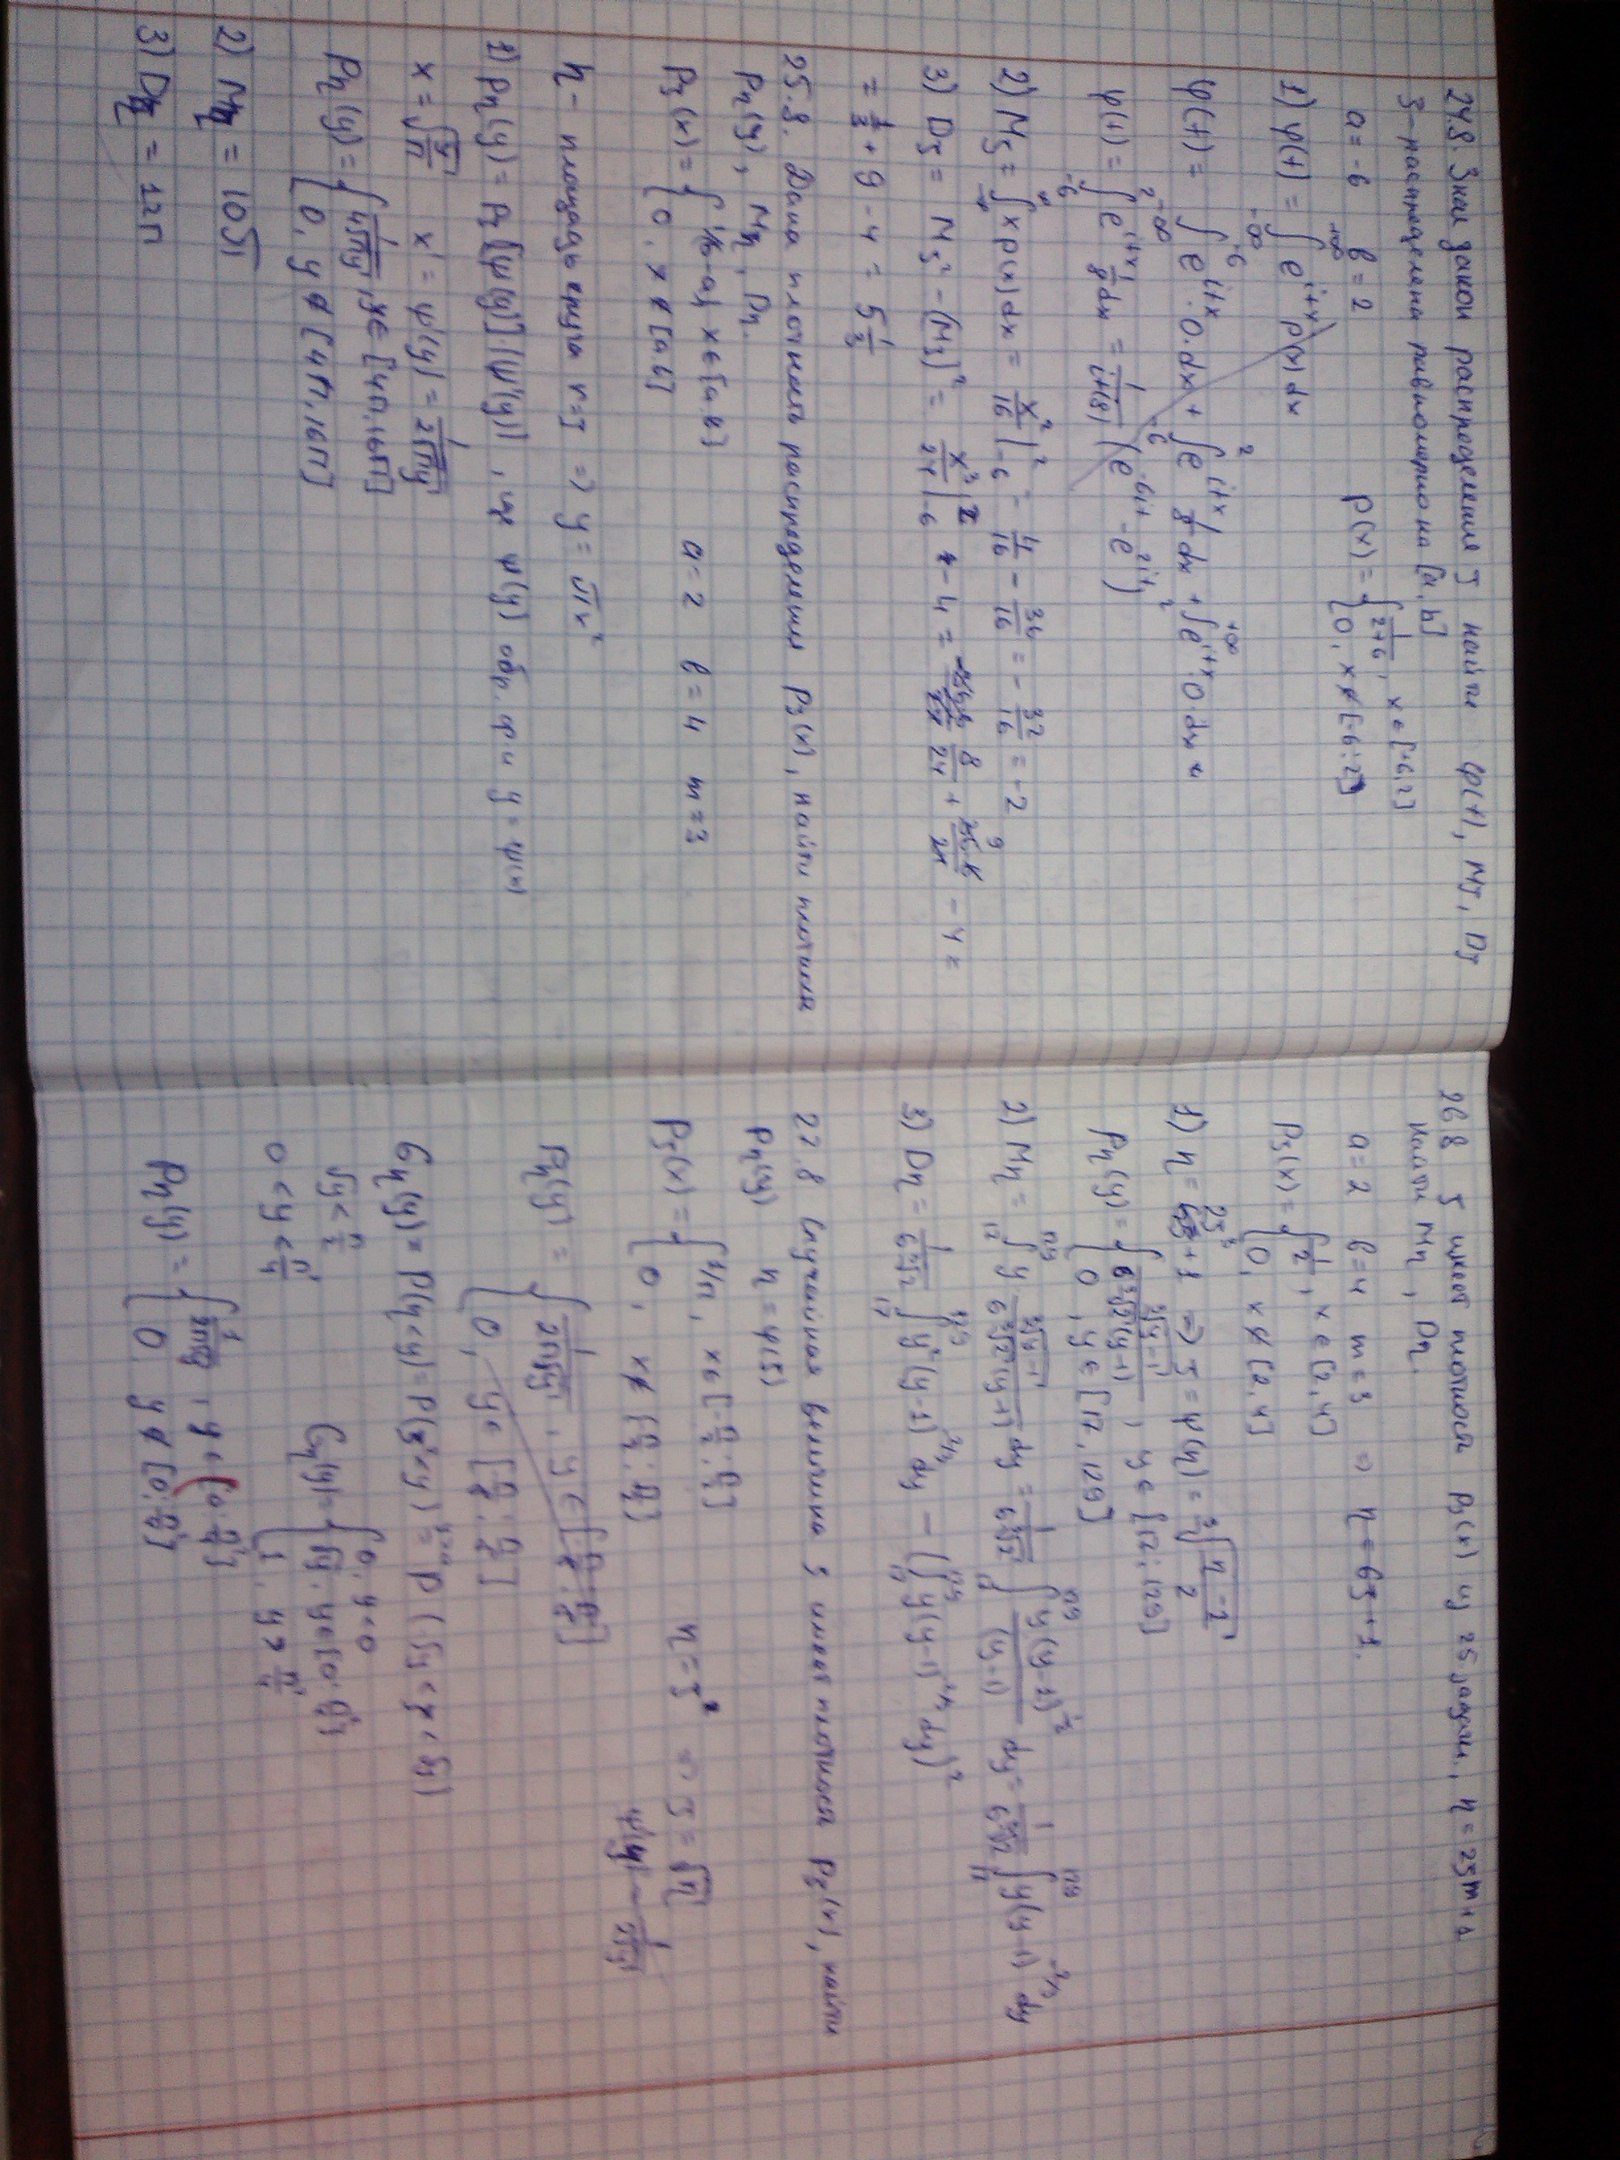 24.8. Зная закон распределения ξ найти φ(t), Mξ, Dξ
ξ - распределена равномерно на [a, b]
a = -6 b = 2 p(x) = { 1/(2+6), x ∈ [-6, 2]
0, x ∉ [-6; 2]
1) φ(t) = ∫_{-∞}^{+∞} e^{itx} p(x) dx
φ(t) = ∫_{-∞}^{-6} e^{itx} · 0 · dx + ∫_{-6}^{2} e^{itx} 1/8 dx + ∫_{2}^{+∞} e^{itx} · 0 · dx =
φ(t) = ∫_{-6}^{2} e^{itx} 1/8 dx = 1/(it(8)) (e^{-6it} - e^{2it})
2) Mξ = ∫ x p(x) dx = x²/16 |_{-6}^{2} = 4/16 - 36/16 = - 32/16 = -2
3) Dξ = Mξ² - (Mξ)² = x³/24 |_{-6}^{2} - 4 = 8/24 + 9 - 4 =
= 1/3 + 9 - 4 = 5 1/3
25.8. Дана плотность распределения pξ(x), найти плотность
pη(y), Mη, Dη.
pξ(x) = { 1/(b-a), x ∈ [a, b]
0, x ∉ [a, b]
a = 2 b = 4 m = 3
η - площадь круга r = ξ ⇒ y = πr²
1) pη(y) = pξ[ψ(y)] · |ψ'(y)|, где ψ(y) обр. ф-и y = φ(x)
x = √(y/π) x' = ψ'(y) = 1/(2√(πy))
pη(y) = { 1/(4√(πy)), y ∈ [4π, 16π]
0, y ∉ [4π, 16π]
2) Mη = 10π
3) Dη = 12π
26.8 ξ имеет плотность pξ(x) из 25 задачи, η = 2ξ^m + 1
найти Mη, Dη.
a = 2 b = 4 m = 3 ⇒ η = 6ξ + 1.
pξ(x) = { 1/2, x ∈ [2, 4]
0, x ∉ [2, 4]
1) η = 2ξ³ + 1 ⇒ ξ = ψ(η) = ∛((η - 1)/2)
pη(y) = { ∛(y-1)/(6∛2(y-1)), y ∈ [17; 129]
0, y ∈ [17, 129]
2) Mη = ∫_{17}^{129} y ∛(y-1)/(6∛2(y-1)) dy = 1/(6∛2) ∫_{17}^{129} y(y-1)^{1/3}/(y-1) dy = 1/(6∛2) ∫_{17}^{129} y(y-1)^{-2/3} dy
3) Dη = 1/(6∛2) ∫_{17}^{129} y²(y-1)^{-2/3} dy - (∫_{17}^{129} y(y-1)^{-2/3} dy)²
27.8 Случайная величина ξ имеет плотность pξ(x), найти
pη(y) η = φ(ξ)
pξ(x) = { 1/π, x ∈ [-π/2; π/2]
0, x ∉ [-π/2; π/2]
η = ξ² ⇒ ξ = √η
ψ'(y) = 1/(2√y)
pη(y) = { 1/(2π√y), y ∈
0, y ∈
Gη(y) = P(η < y) = P(ξ² < y) = P(-√y < ξ < √y)
√y < π/2
0 < y < π²/4
Gη(y) = { 0, y < 0
√y, y ∈ [0; π²/4]
1, y > π²/4
pη(y) = { 1/(2π√y), y ∈ (0; π²/4]
0, y ∉ [0; π²/4]